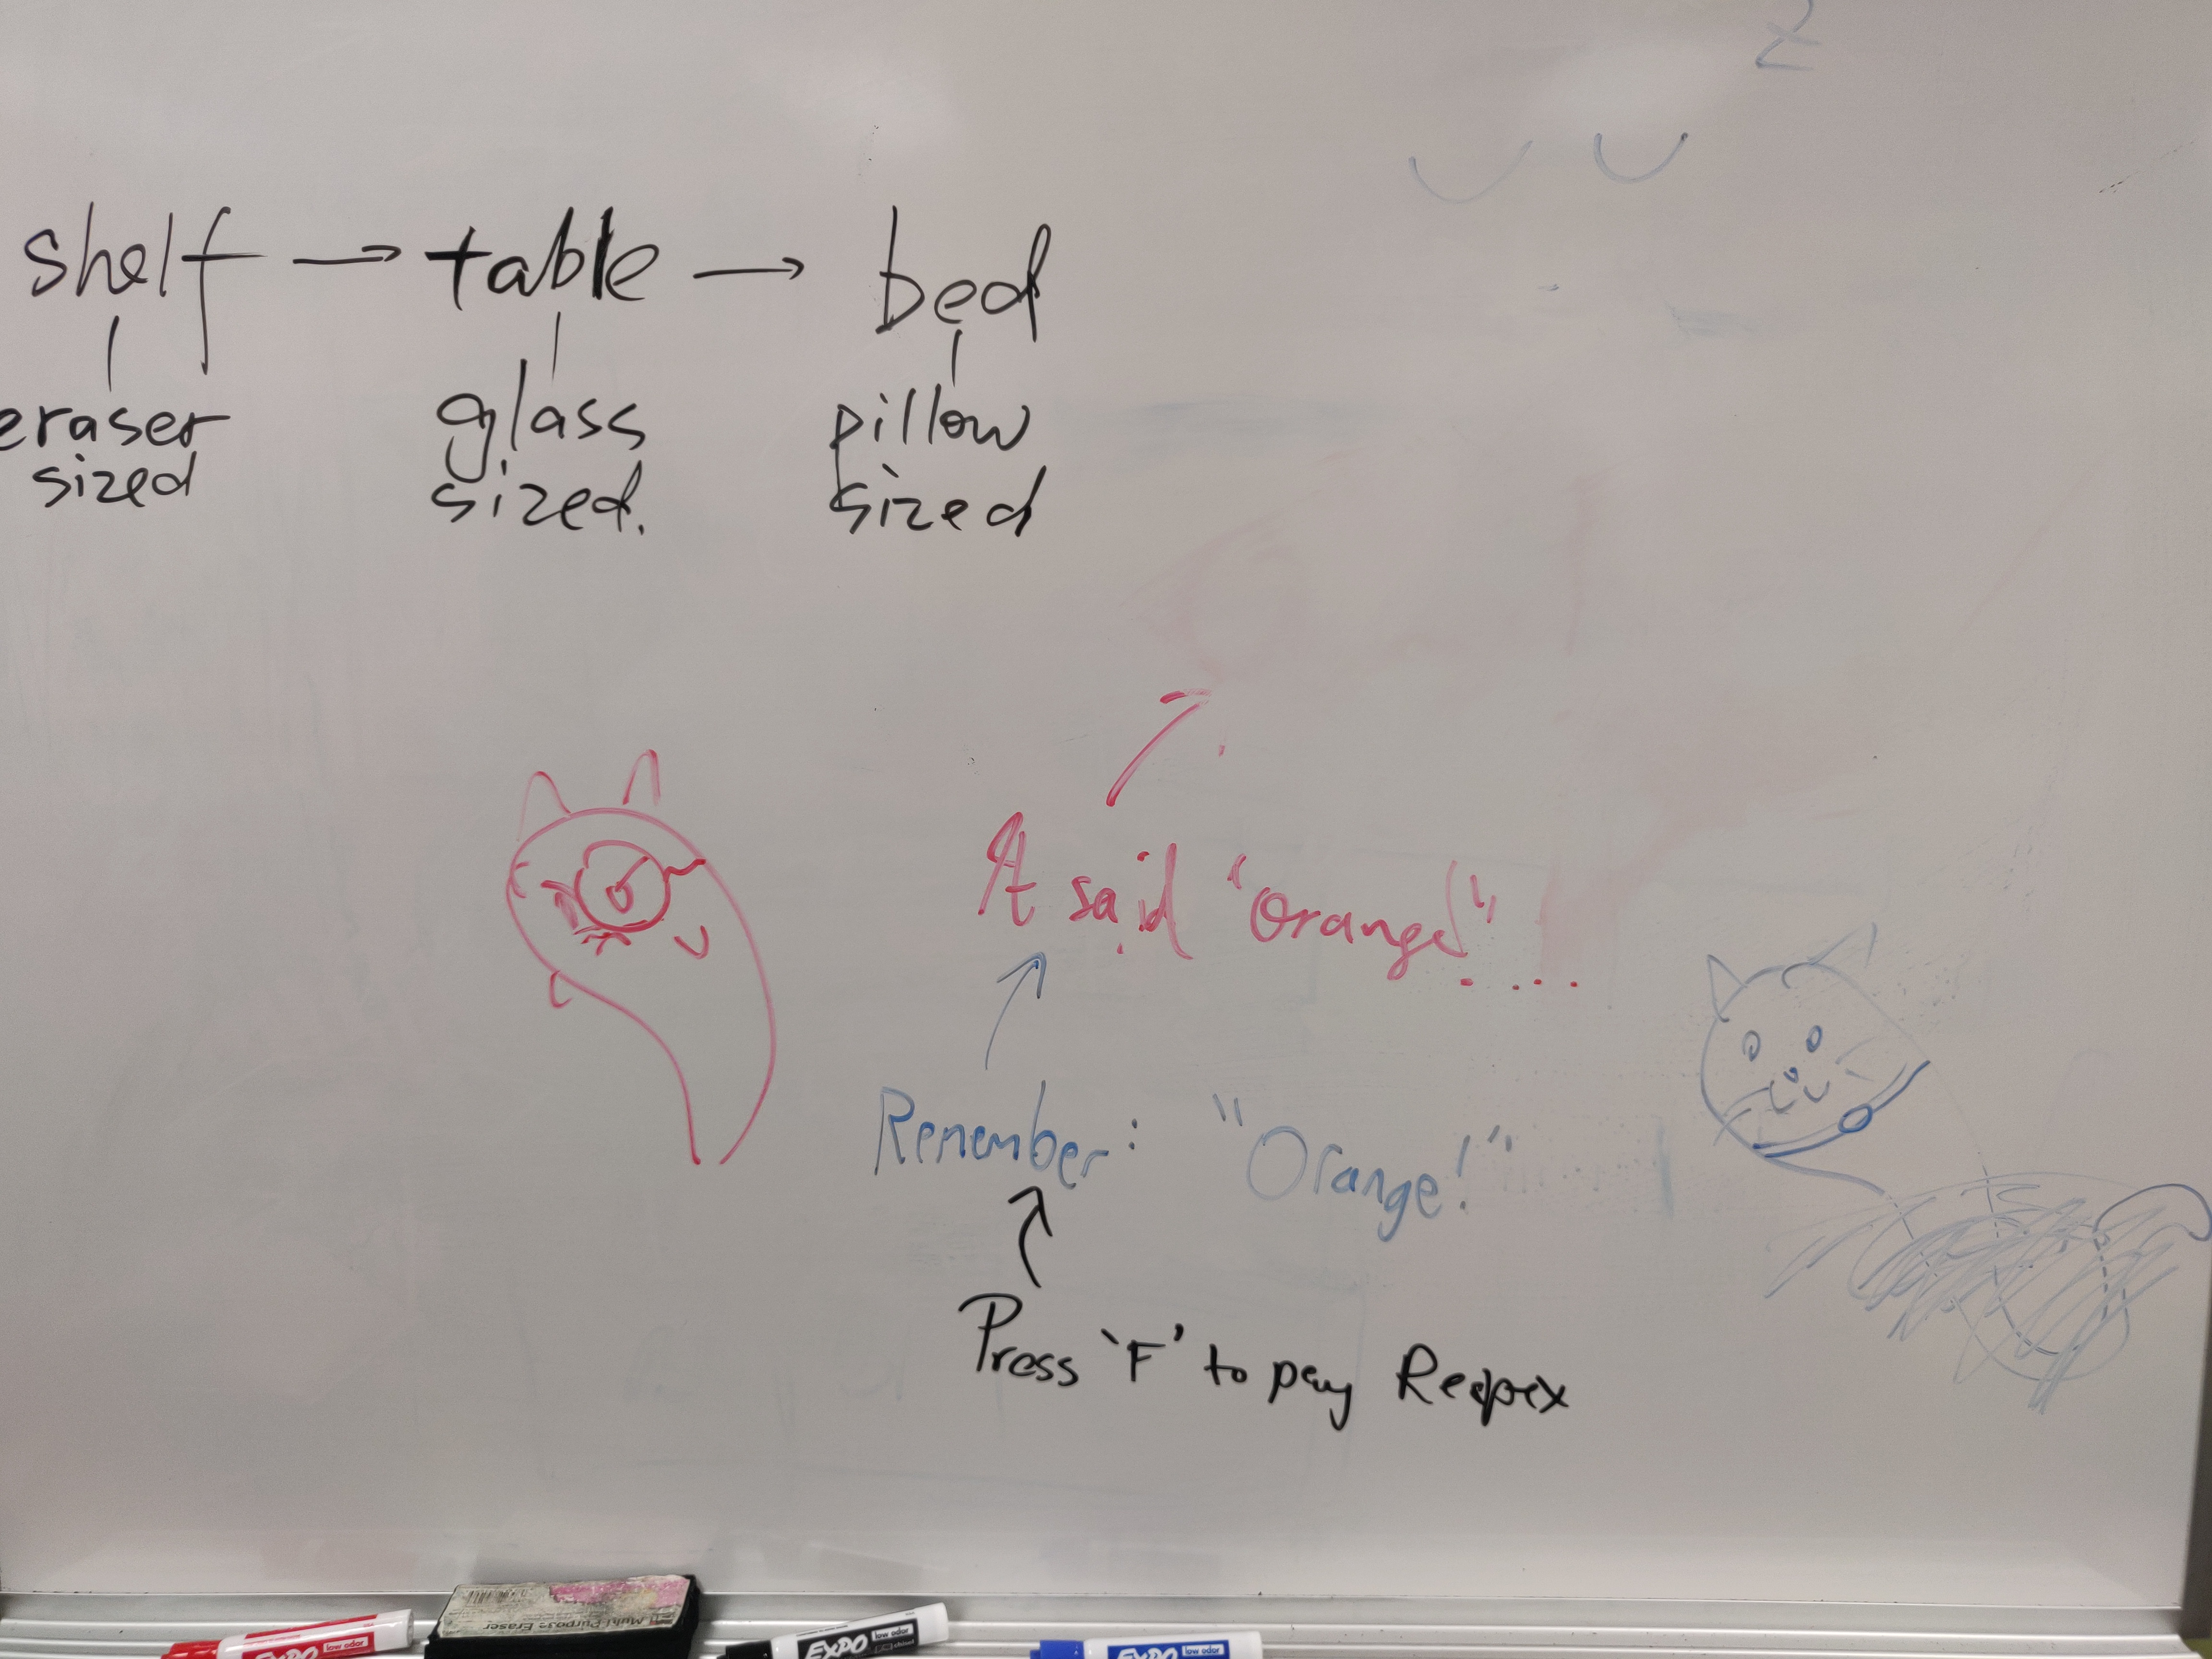 2
shelf → table → bed
eraser sized
glass sized.
pillow sized
It said "Orange" ....
Remember: "Orange!"
Press 'F' to pay Respex
Multi-Purpose Eraser
EXPO low odor
EXPO low odor
EXPO low odor